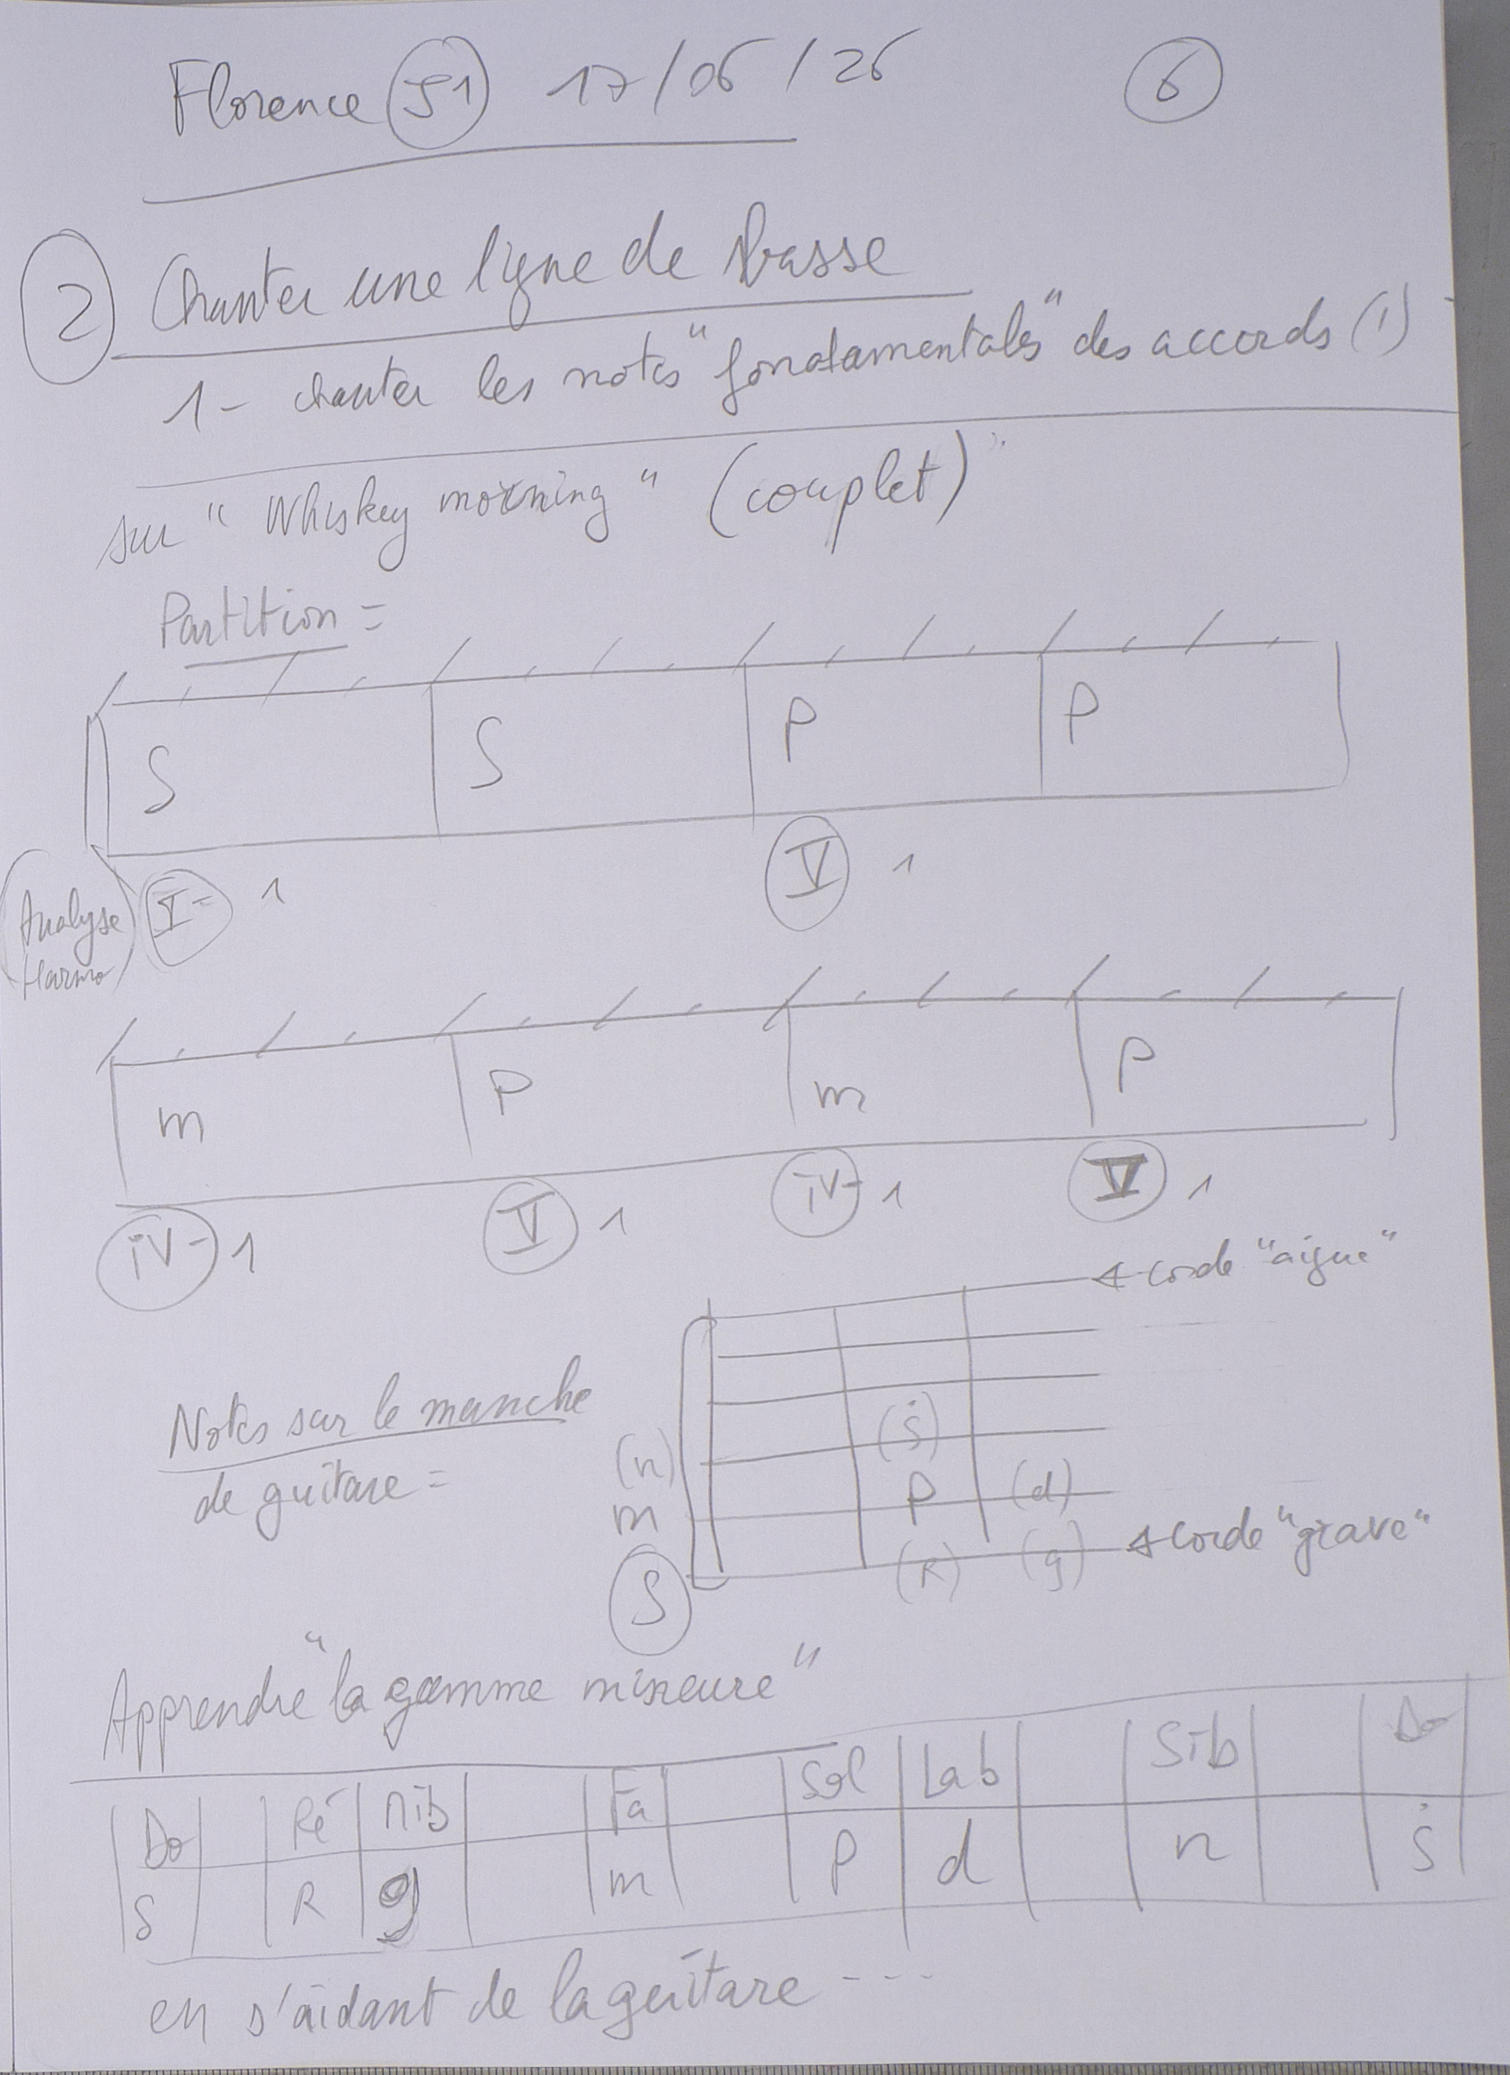 Florence S1 17/06/26 6
2 Chanter une ligne de basse
1- chanter les notes "fondamentales" des accords (1)
sur "Whiskey morning" (couplet)
Partition =
S S P P
Analyse
Harmo
I- 1 V 1
m P m P
iV- 1 V 1 iV- 1 V 1
corde "aigue"
Notes sur le manche
de guitare =
(ṡ)
(n)
P (d)
m
corde "grave"
(R) (g)
S
Apprendre "la gamme mineure"
Do Ré Mib Fa Sol Lab Sib Do
S R g m P d n ṡ
en s'aidant de la guitare ---